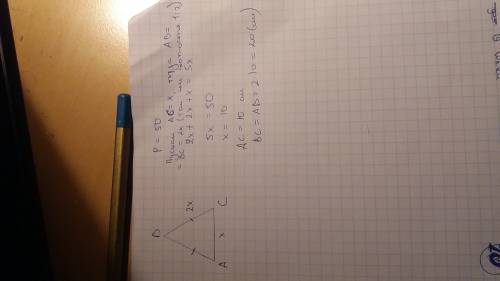 P = 50
Пусть AC = x, тогда AB =
= BC = 2x (так как 1:2)
2x + 2x + x = 5x
5x = 50
x = 10
AC = 10 см
BC = AB = 2·10 = 20 (см)
B
2x
C
x
A